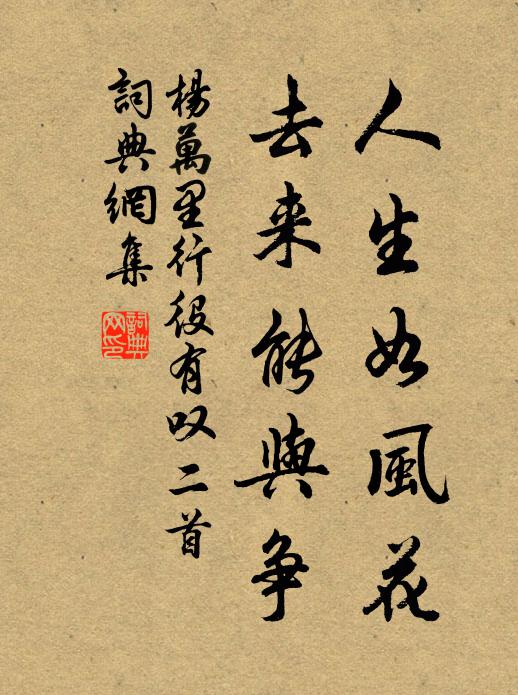 人生如風花
去来能與争
楊萬里行役有叹二首
詞典網集
詞典网印